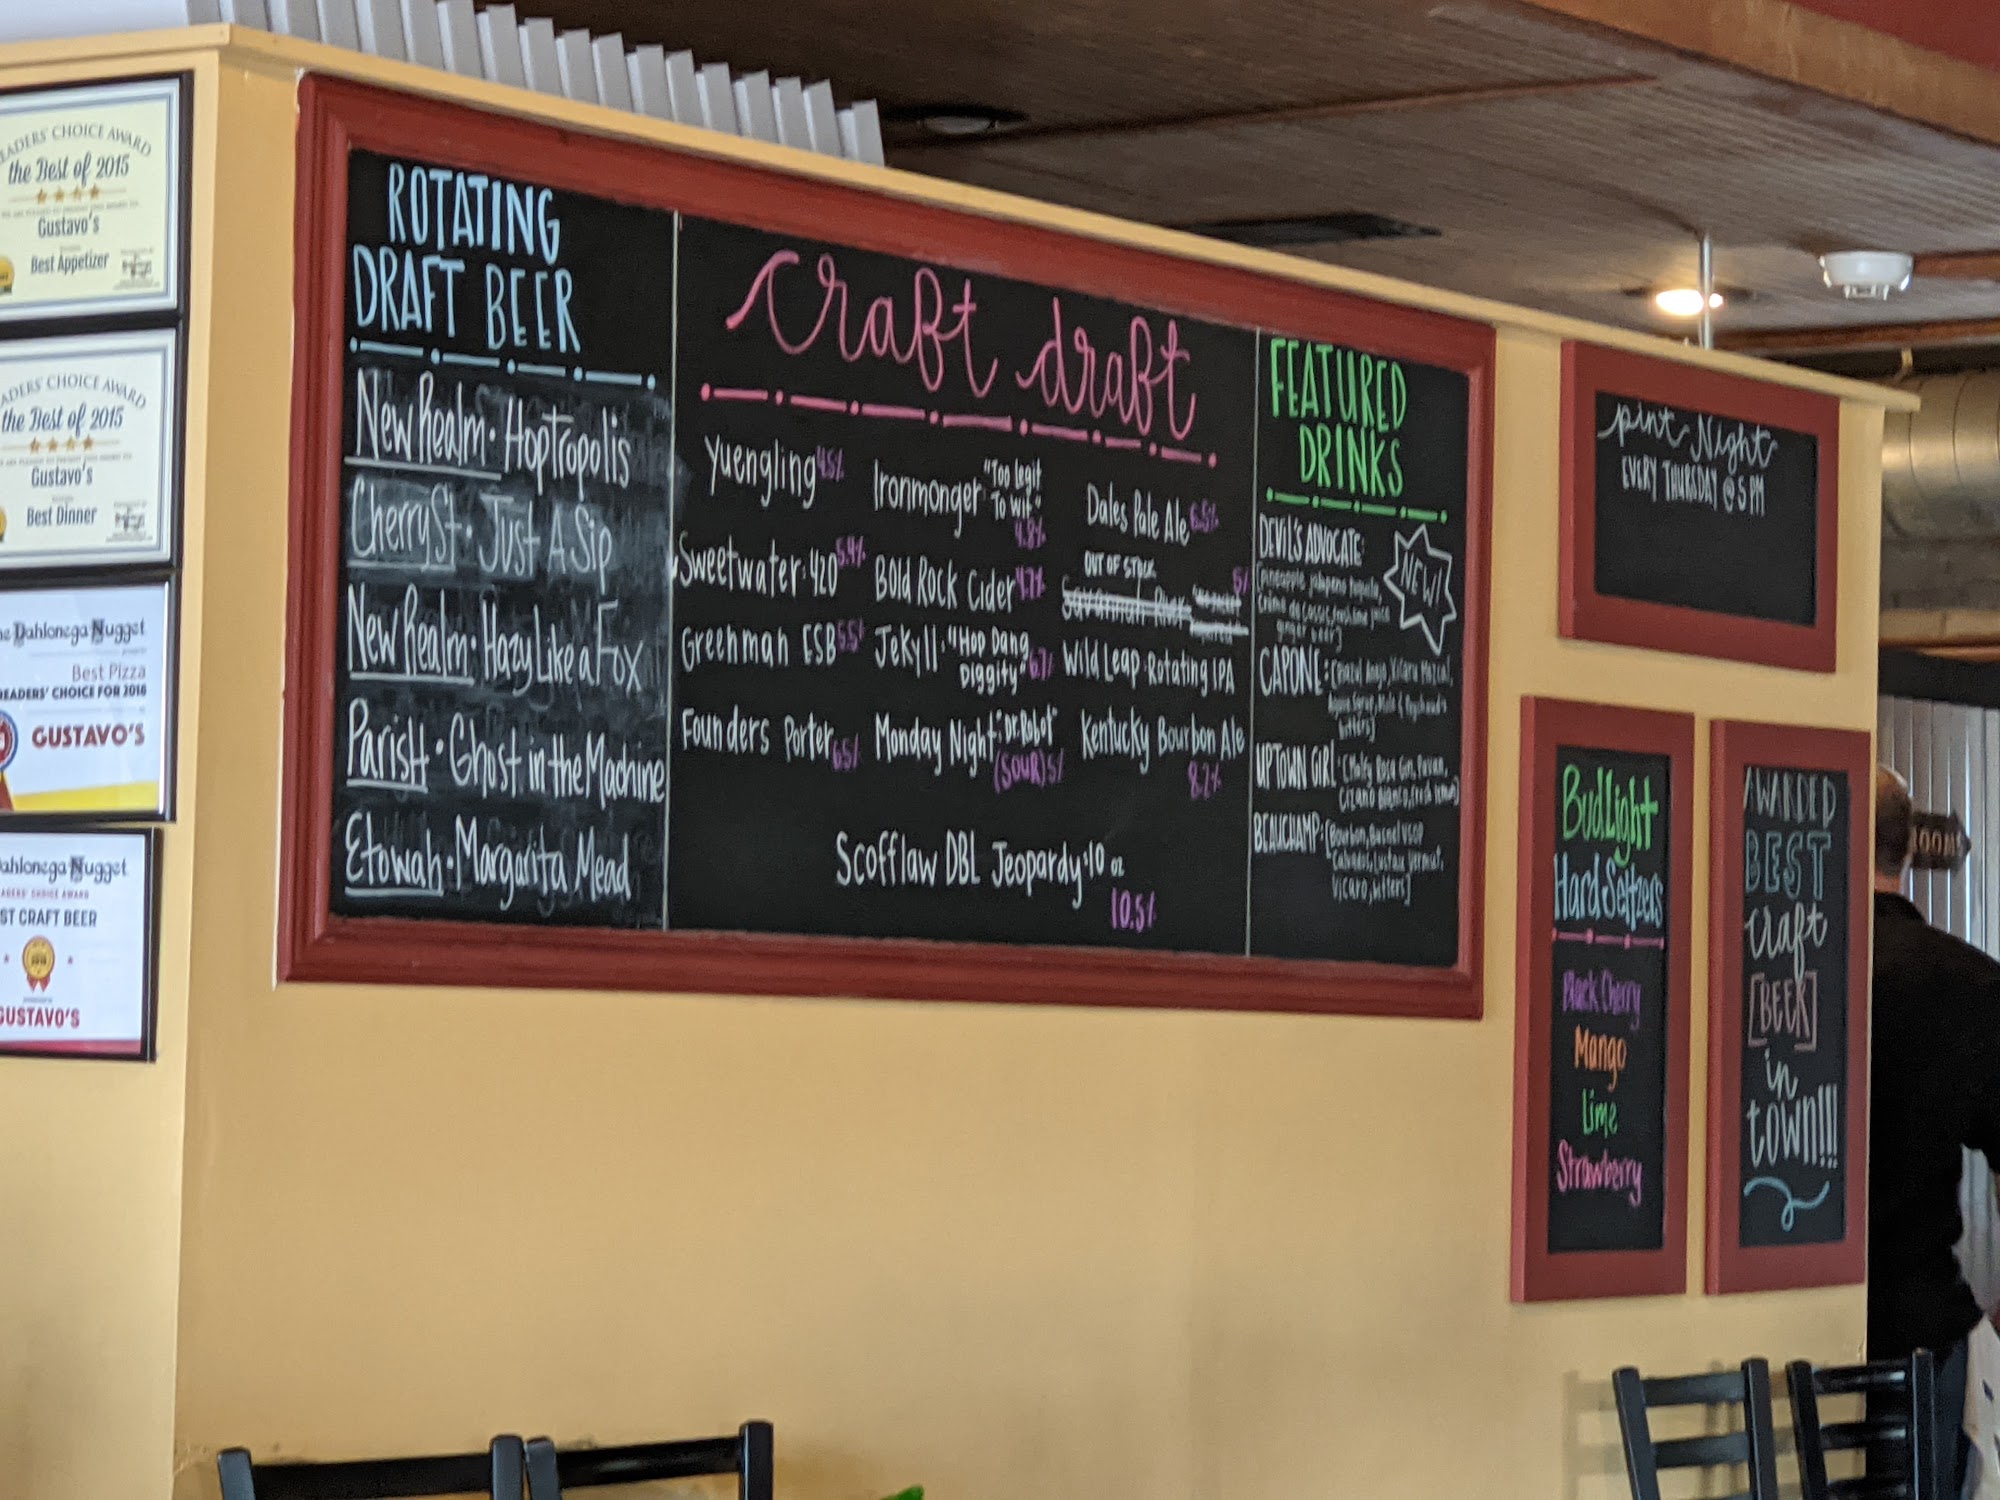 READERS' CHOICE AWARD
the Best of 2015
Gustavo's
Best Appetizer
READERS' CHOICE AWARD
the Best of 2015
Gustavo's
Best Dinner
Dahlonega Nugget
Best Pizza
READERS' CHOICE FOR 2016
GUSTAVO'S
Dahlonega Nugget
ST CRAFT BEER
GUSTAVO'S
ROTATING
DRAFT BEER
New Realm • Hoptropolis
Cherry St • Just A Sip
New Realm • Hazy Like a Fox
Parish • Ghost in the Machine
Etowah • Margarita Mead
Craft draft
Yuengling 4.5%
Sweetwater • 420 5.4%
Greenman ESB 5.5%
Founders Porter 6.5%
Ironmonger "Too Legit
To Wit"
4.8%
Bold Rock Cider 4.7%
Jekyll • "Hop Dang
Diggity" 6.7%
Monday Night "Dr. Robot"
(SOUR) 5%
Dales Pale Ale 6.5%
OUT OF STOCK
Savannah River 5%
Wild Leap • Rotating IPA
Kentucky Bourbon Ale
8.2%
Scofflaw DBL Jeopardy • 10 oz
10.5%
FEATURED
DRINKS
DEVIL'S ADVOCATE:
[pineapple, jalapeno tequila,
ginger beer]
NEW!
CAPONE:
bitters]
UPTOWN GIRL:
BEAUCHAMP: [Bourbon,
bitters]
Pint Night
EVERY THURSDAY @ 5 PM
Bud Light
Hard Seltzers
Black Cherry
Mango
Lime
Strawberry
AWARDED
BEST
craft
[BEER]
in
town!!!
ROOMS